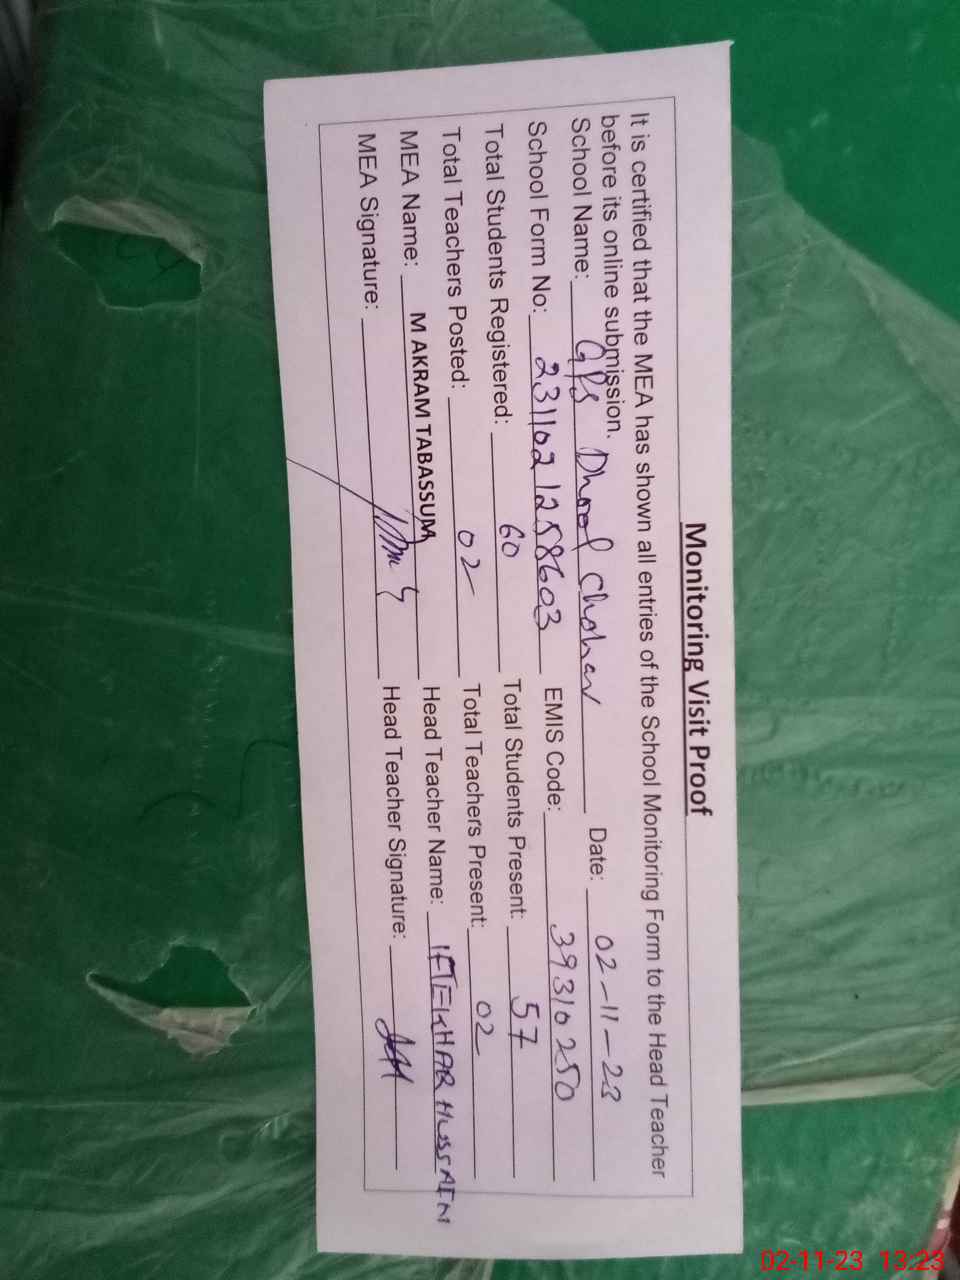 Monitoring Visit Proof
It is certified that the MEA has shown all entries of the School Monitoring Form to the Head Teacher
before its online submission.
School Name: GPS Dhool Chohan Date: 02-11-23
School Form No: 2311021258603 EMIS Code: 39310250
Total Students Registered: 60 Total Students Present: 57
Total Teachers Posted: 02 Total Teachers Present: 02
MEA Name: M AKRAM TABASSUM Head Teacher Name: IFTEKHAR HUSSAIN
MEA Signature: Head Teacher Signature:
02-11-23 13:23